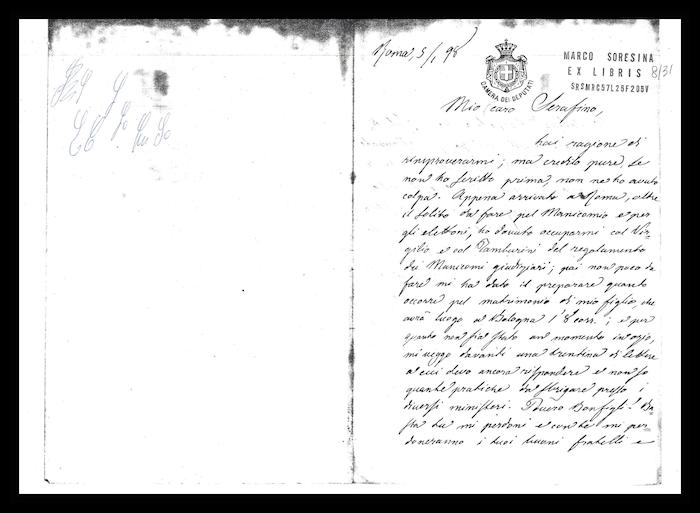 Roma, 5/1, 98
CAMERA DEI DEPUTATI
MARCO SORESINA
EX LIBRIS 8/31
SRSMRC57L25F205V
Mio caro Serafino,
hai ragione di
rimproverarmi; ma credilo pure, se
non ho scritto prima, non ne ho avuto
colpa. Appena arrivato a Roma, oltre
il solito da fare pel Manicomio e per
gli elettori, ho dovuto occuparmi col Vir-
gilio e col Tamburini del regolamento
dei Manicomi giudiziari; poi non poco da
fare mi ha dato il preparare quanto
occorre pel matrimonio di mio figlio, che
avrà luogo a Bologna l'8 corr.; e per
quanto non sia stato un momento in ozio,
mi veggo davanti una trentina di lettere
a cui devo ancora rispondere e non so
quante pratiche da sbrigare presso i
diversi ministeri. Povero Bonfigli! Ba-
sta tu mi perdoni e con te mi per-
doneranno i tuoi buoni fratelli e